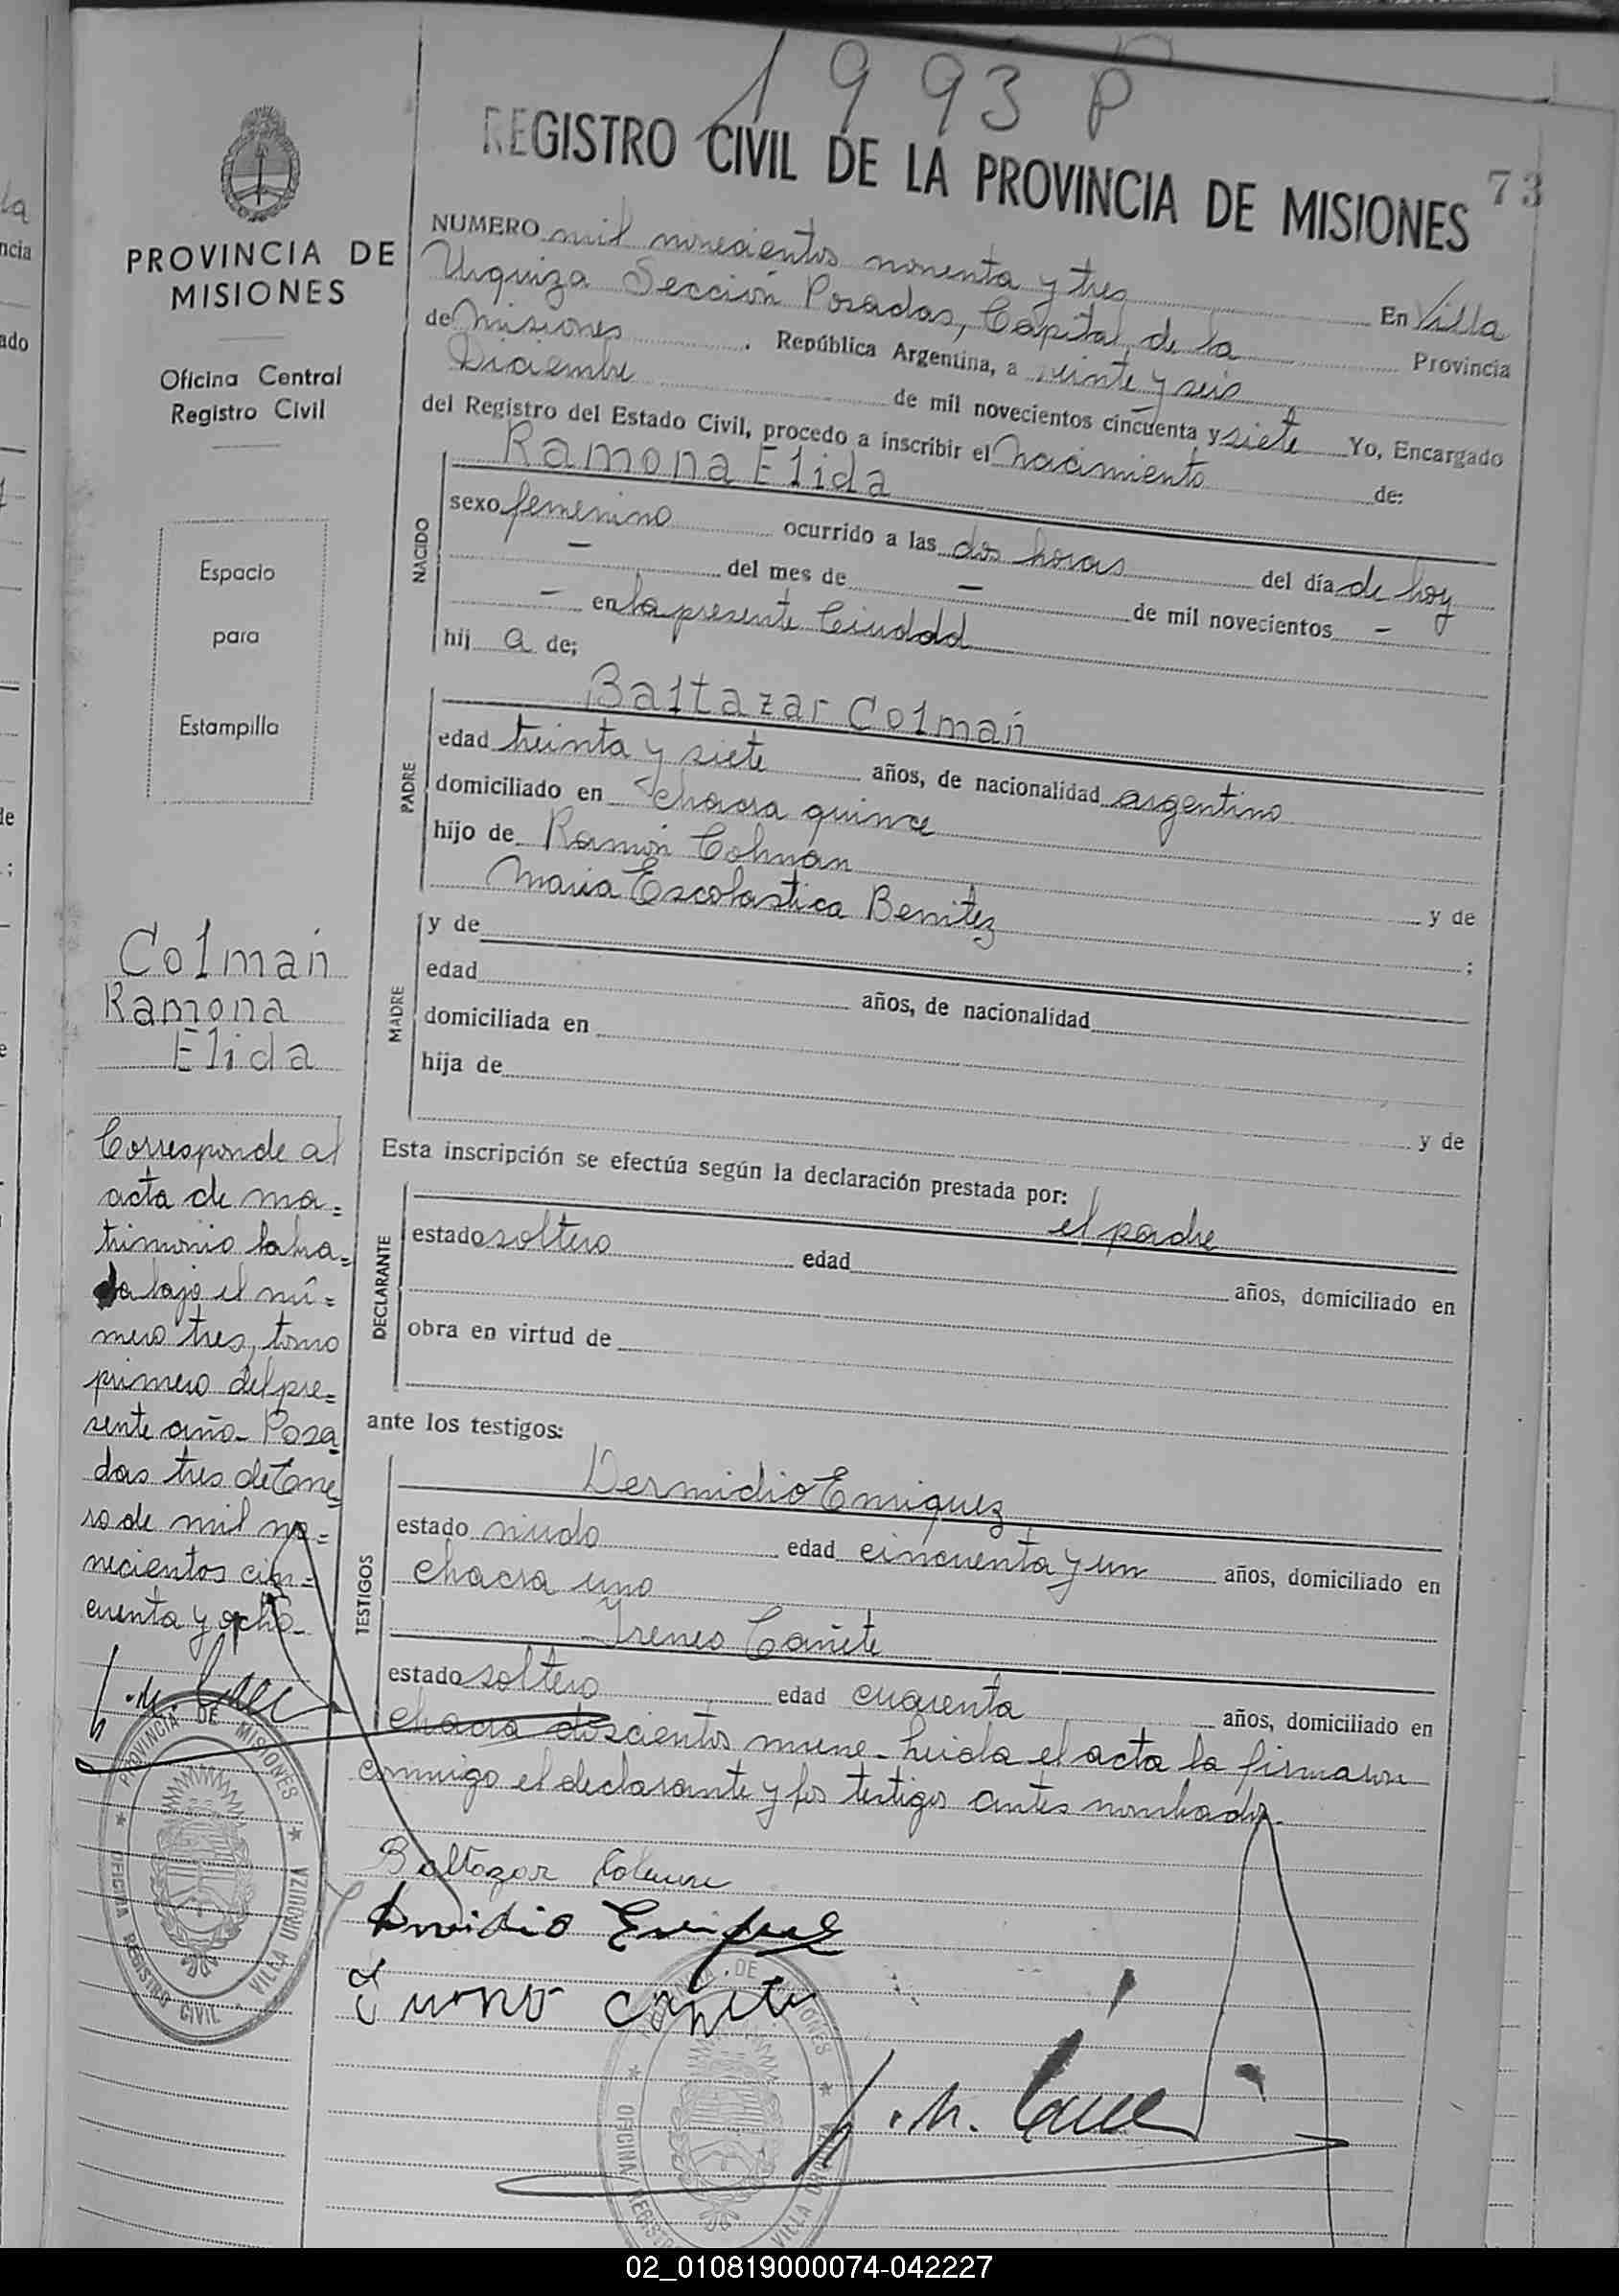 1993 P
REGISTRO CIVIL DE LA PROVINCIA DE MISIONES
73
PROVINCIA DE
MISIONES
Oficina Central
Registro Civil
Espacio
para
Estampilla
NUMERO mil novecientos noventa y tres En Villa
Urquiza Sección Posadas, Capital de la Provincia
de Misiones. República Argentina, a veinte y seis
Diciembre de mil novecientos cincuenta y siete Yo, Encargado
del Registro del Estado Civil, procedo a inscribir el nacimiento de:
NACIDO
Ramona Elida
sexo femenino ocurrido a las dos horas del día de hoy
- del mes de - de mil novecientos -
- en la presente Ciudad
hij a de;
PADRE
Baltazar Colmán
edad treinta y siete años, de nacionalidad argentino
domiciliado en chacra quince
hijo de Ramón Colman y de
Maria Escolastica Benitez ;
MADRE
y de
edad años, de nacionalidad
domiciliada en
hija de
y de
Esta inscripción se efectúa según la declaración prestada por:
DECLARANTE
el padre
estado soltero edad años, domiciliado en
obra en virtud de
ante los testigos:
TESTIGOS
Dermidio Enriquez
estado viudo edad cincuenta y un años, domiciliado en
chacra uno
Ireneo Cañete
estado soltero edad cuarenta años, domiciliado en
chacra doscientos nueve- leida el acta la firmaron
conmigo el declarante y los testigos antes nombrados.
Baltazar Colman
Enriquez
Cañete
Colmán
Ramona
Elida
Corresponde al
acta de ma=
trimonio labra=
da bajo el nú=
mero tres, tomo
primero del pre=
sente año- Posa
das tres de Ene
ro de mil no=
vecientos cin=
cuenta y ocho-
PROVINCIA DE MISIONES
OFICINA REGISTRO CIVIL - VILLA URQUIZA
02_010819000074-042227